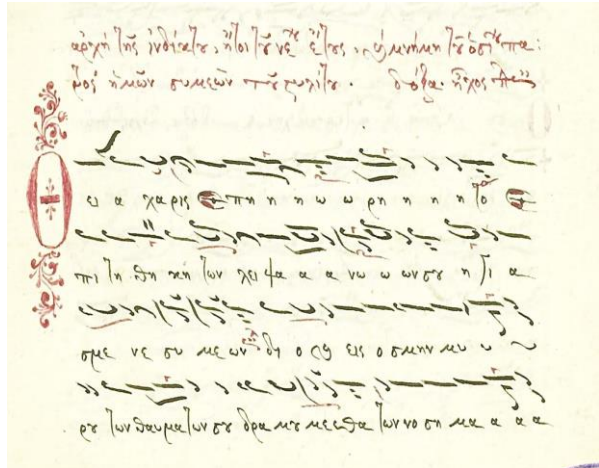 ἀρχὴ τῆς ἰνδίκτου, ἤτοι τοῦ νέου ἔτους, καὶ μνήμη τοῦ ὁσίου πα:
τρὸς ἡμῶν συμεὼν τοῦ στυλίτου. δόξα. ἦχος
Θ ει α χαρις πη η η ω ω ρη η η η το ε
πι τη θη κη των λει ψα α α νω ω ων σου η γι α
σμε νε συ με ων δι ο ϗ εις ο σμην μυ υ υ
ρου των θαυματων σου δρα μου μεεθα των νο ση μα α α α